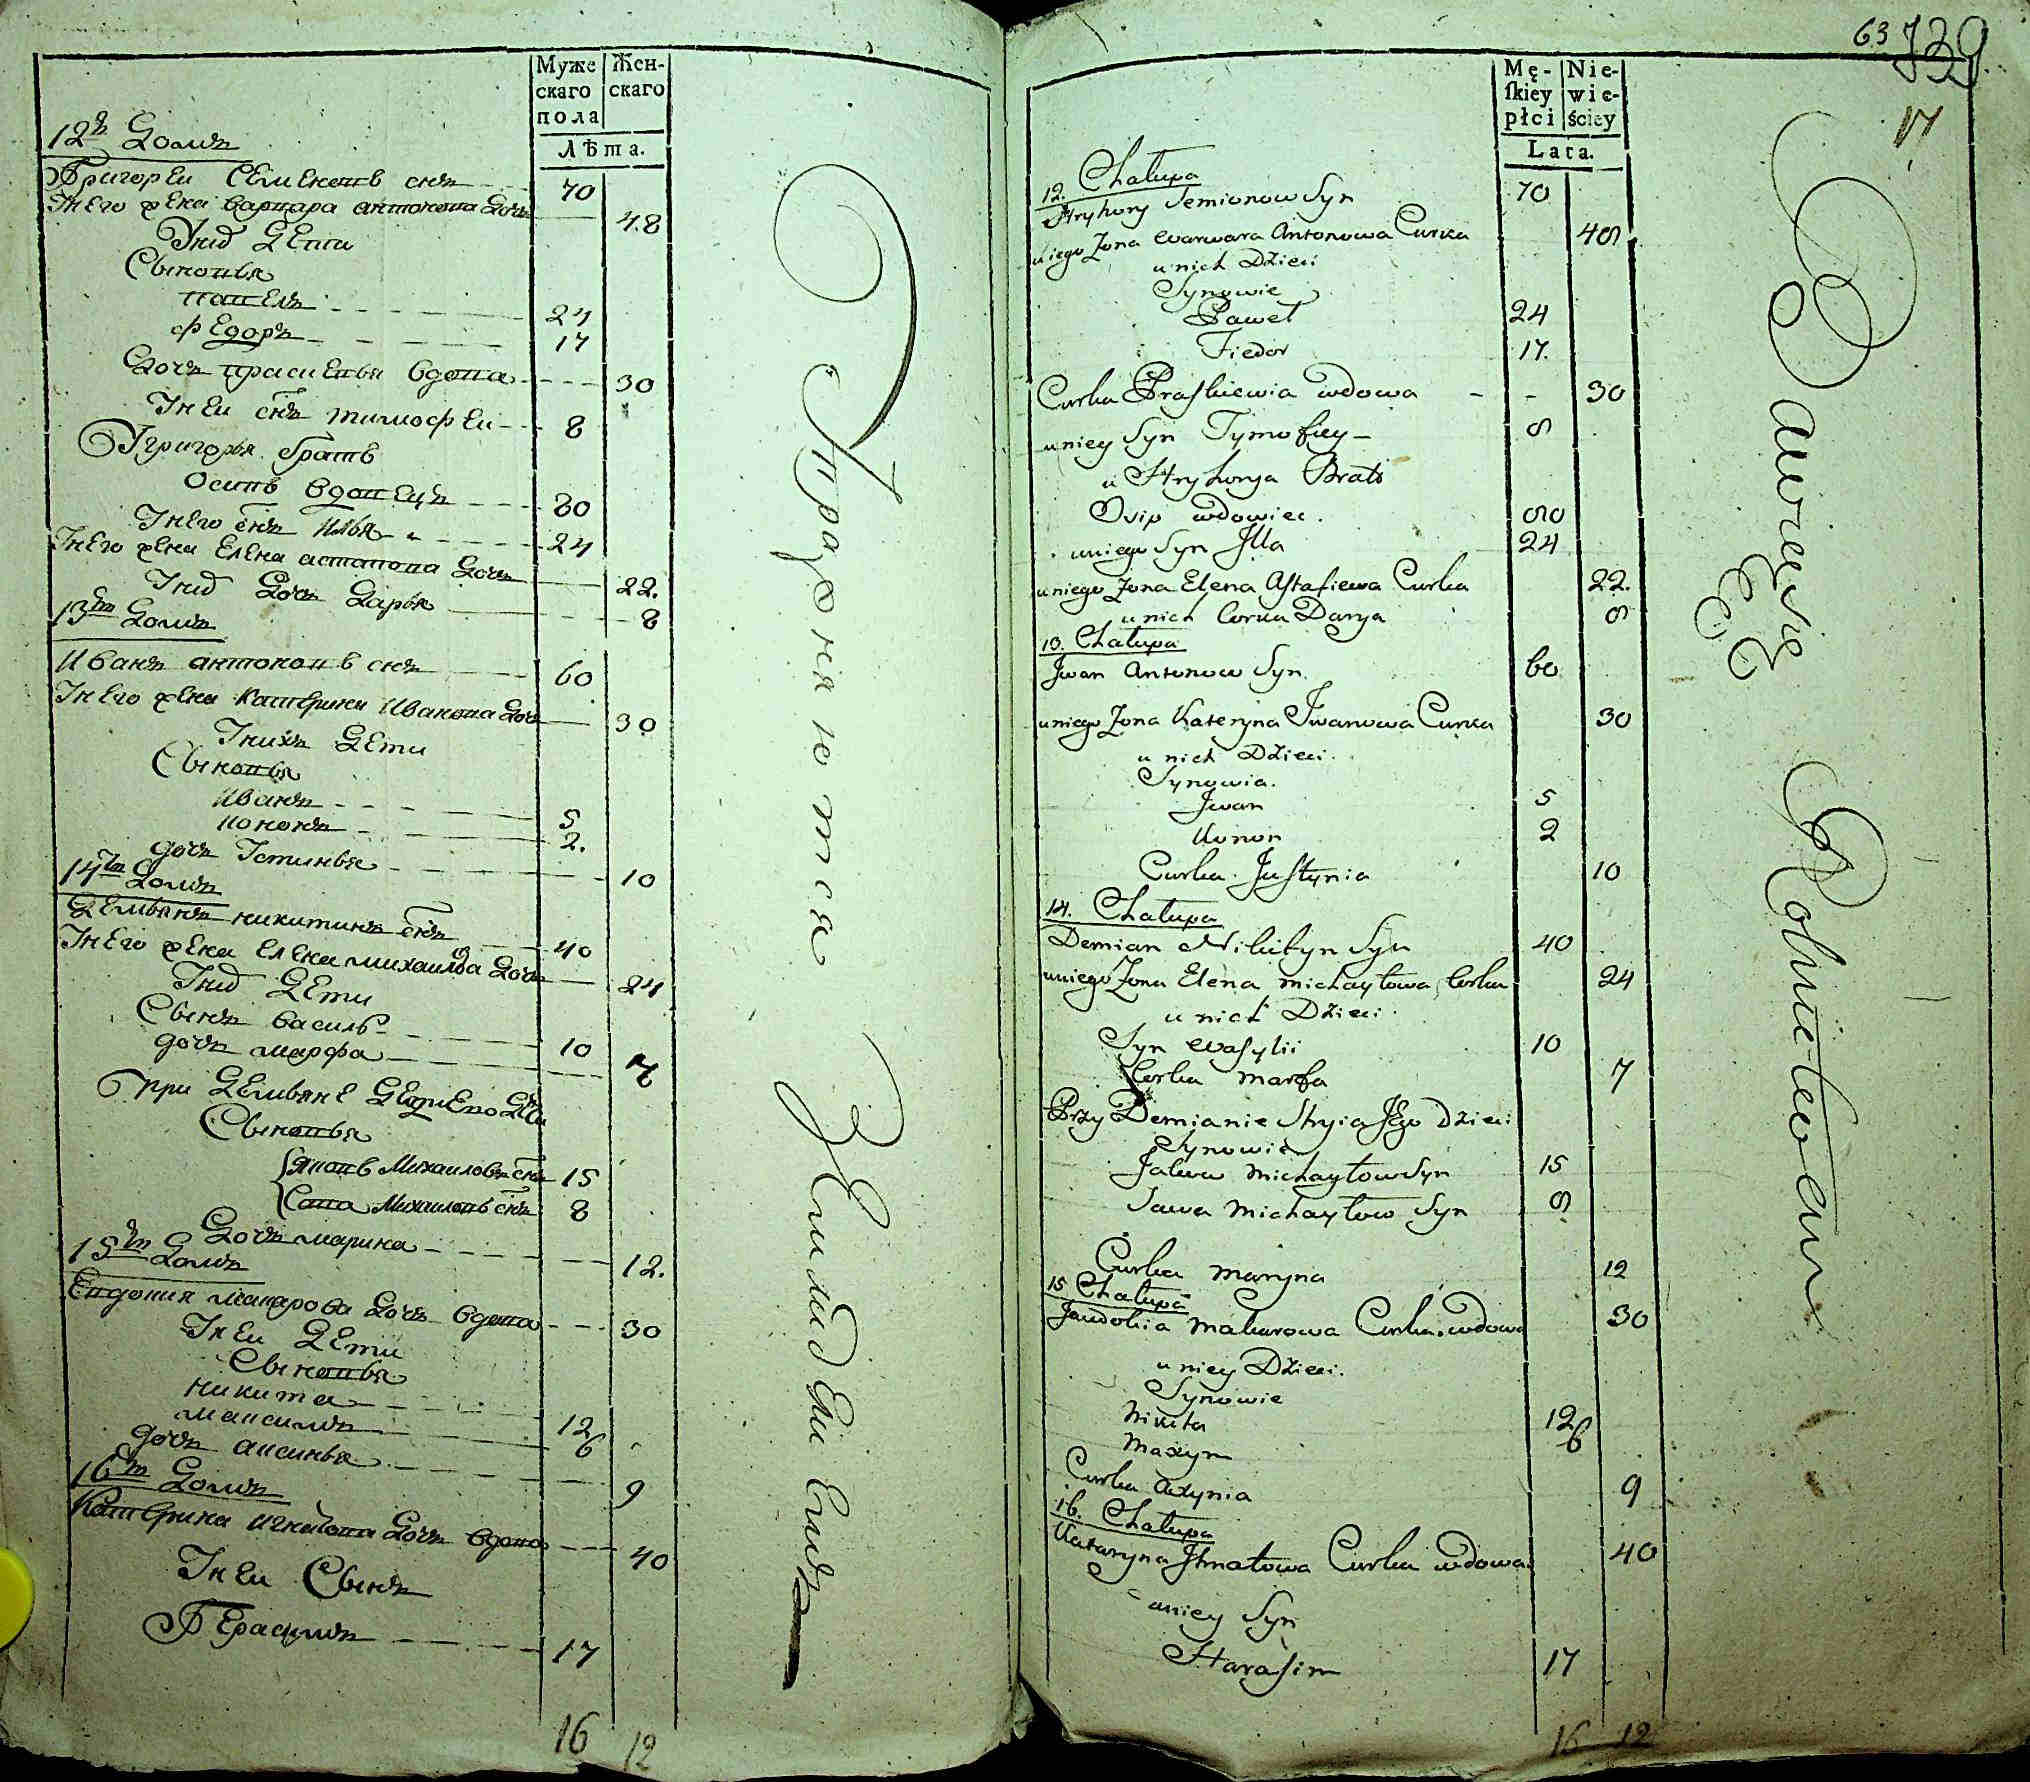 Муже
скаго
пола
Жен-
скаго
Лѣта.
12й Домъ
Григореи Семеновъ снъ 70
У него жена варвара антонова дочь 48
У нихъ дети
Сыновья
павелъ 24
федоръ 17
Дочь прасковья вдова 30
У неи снъ тимофеи 8
У григорья братъ
осипъ вдовецъ 80
У него снъ илья 24
У него жена елена астапова дочь 22.
У нихъ дочь дарья 8
13й Домъ
иванъ антоновъ снъ 60
У него жена катерина иванова дочь 30
У нихъ дети
Сыновья
иванъ 5
кононъ 2.
дочь Устинья 10
14й Домъ
демьянъ никитинъ снъ 40
У него жена елена михаилова дочь 24
У нихъ дети
Сынъ василь 10
дочь марфа 7
при демьяне
Сыновья
Яковъ Михаиловъ снъ 15
Сава Михаиловъ снъ 8
Дочь марина 12.
15й Домъ
Евдокия макарова дочь вдова 30
У неи дети
Сыновья
никита 12
максимъ 6
дочь аксинья 9
16й Домъ
Катерина игнатова дочь вдова 40
У неи Сынъ
Герасимъ 17
16 12
Упражняются Земледелиемъ
63 739
17
Mę-
skiey
płci
Nie-
wie-
ściey
Lata.
12. Chałupa
Hryhory Semionow Syn 70
u niego Żona Warwara Antonowa Curka 48
u nich Dzieci
Synowie
Paweł 24
Fiedor 17.
Curka Praskiewia wdowa 30
u niey Syn Tymofiey 8
u Hryhorya Brat
Osip wdowiec. 80
u niego Syn Illa 24
u niego Żona Elena Astafiewa Curka 22.
u nich Corka Darya 8
13. Chałupa
Jwan Antonow Syn 60
u niego Żona Kateryna Jwanowa Curka 30
u nich Dzieci.
Synowia.
Jwan 5
Konon 2
Curka Justynia 10
14. Chałupa
Demian Nikityn Syn 40
u niego Żona Elena Michayłowa Corka 24
u nich Dzieci
Syn Wasylii 10
Corka Marfa 7
Przy Demianie Stryia Jego Dzieci
Synowie
Jakow Michayłow Syn 15
Sawa Michayłow Syn 8
Curka Maryna 12
15 Chałupa
Jewdokia Makarowa Curka wdowa 30
u niey Dzieci.
Synowie
Nikita 12
Maxym 6
Curka Axynia 9
16. Chałupa
Kataryna Jhnatowa Curka wdowa 40
u niey Syn
Harasim 17
16 12
Bawię się Rolnictwem